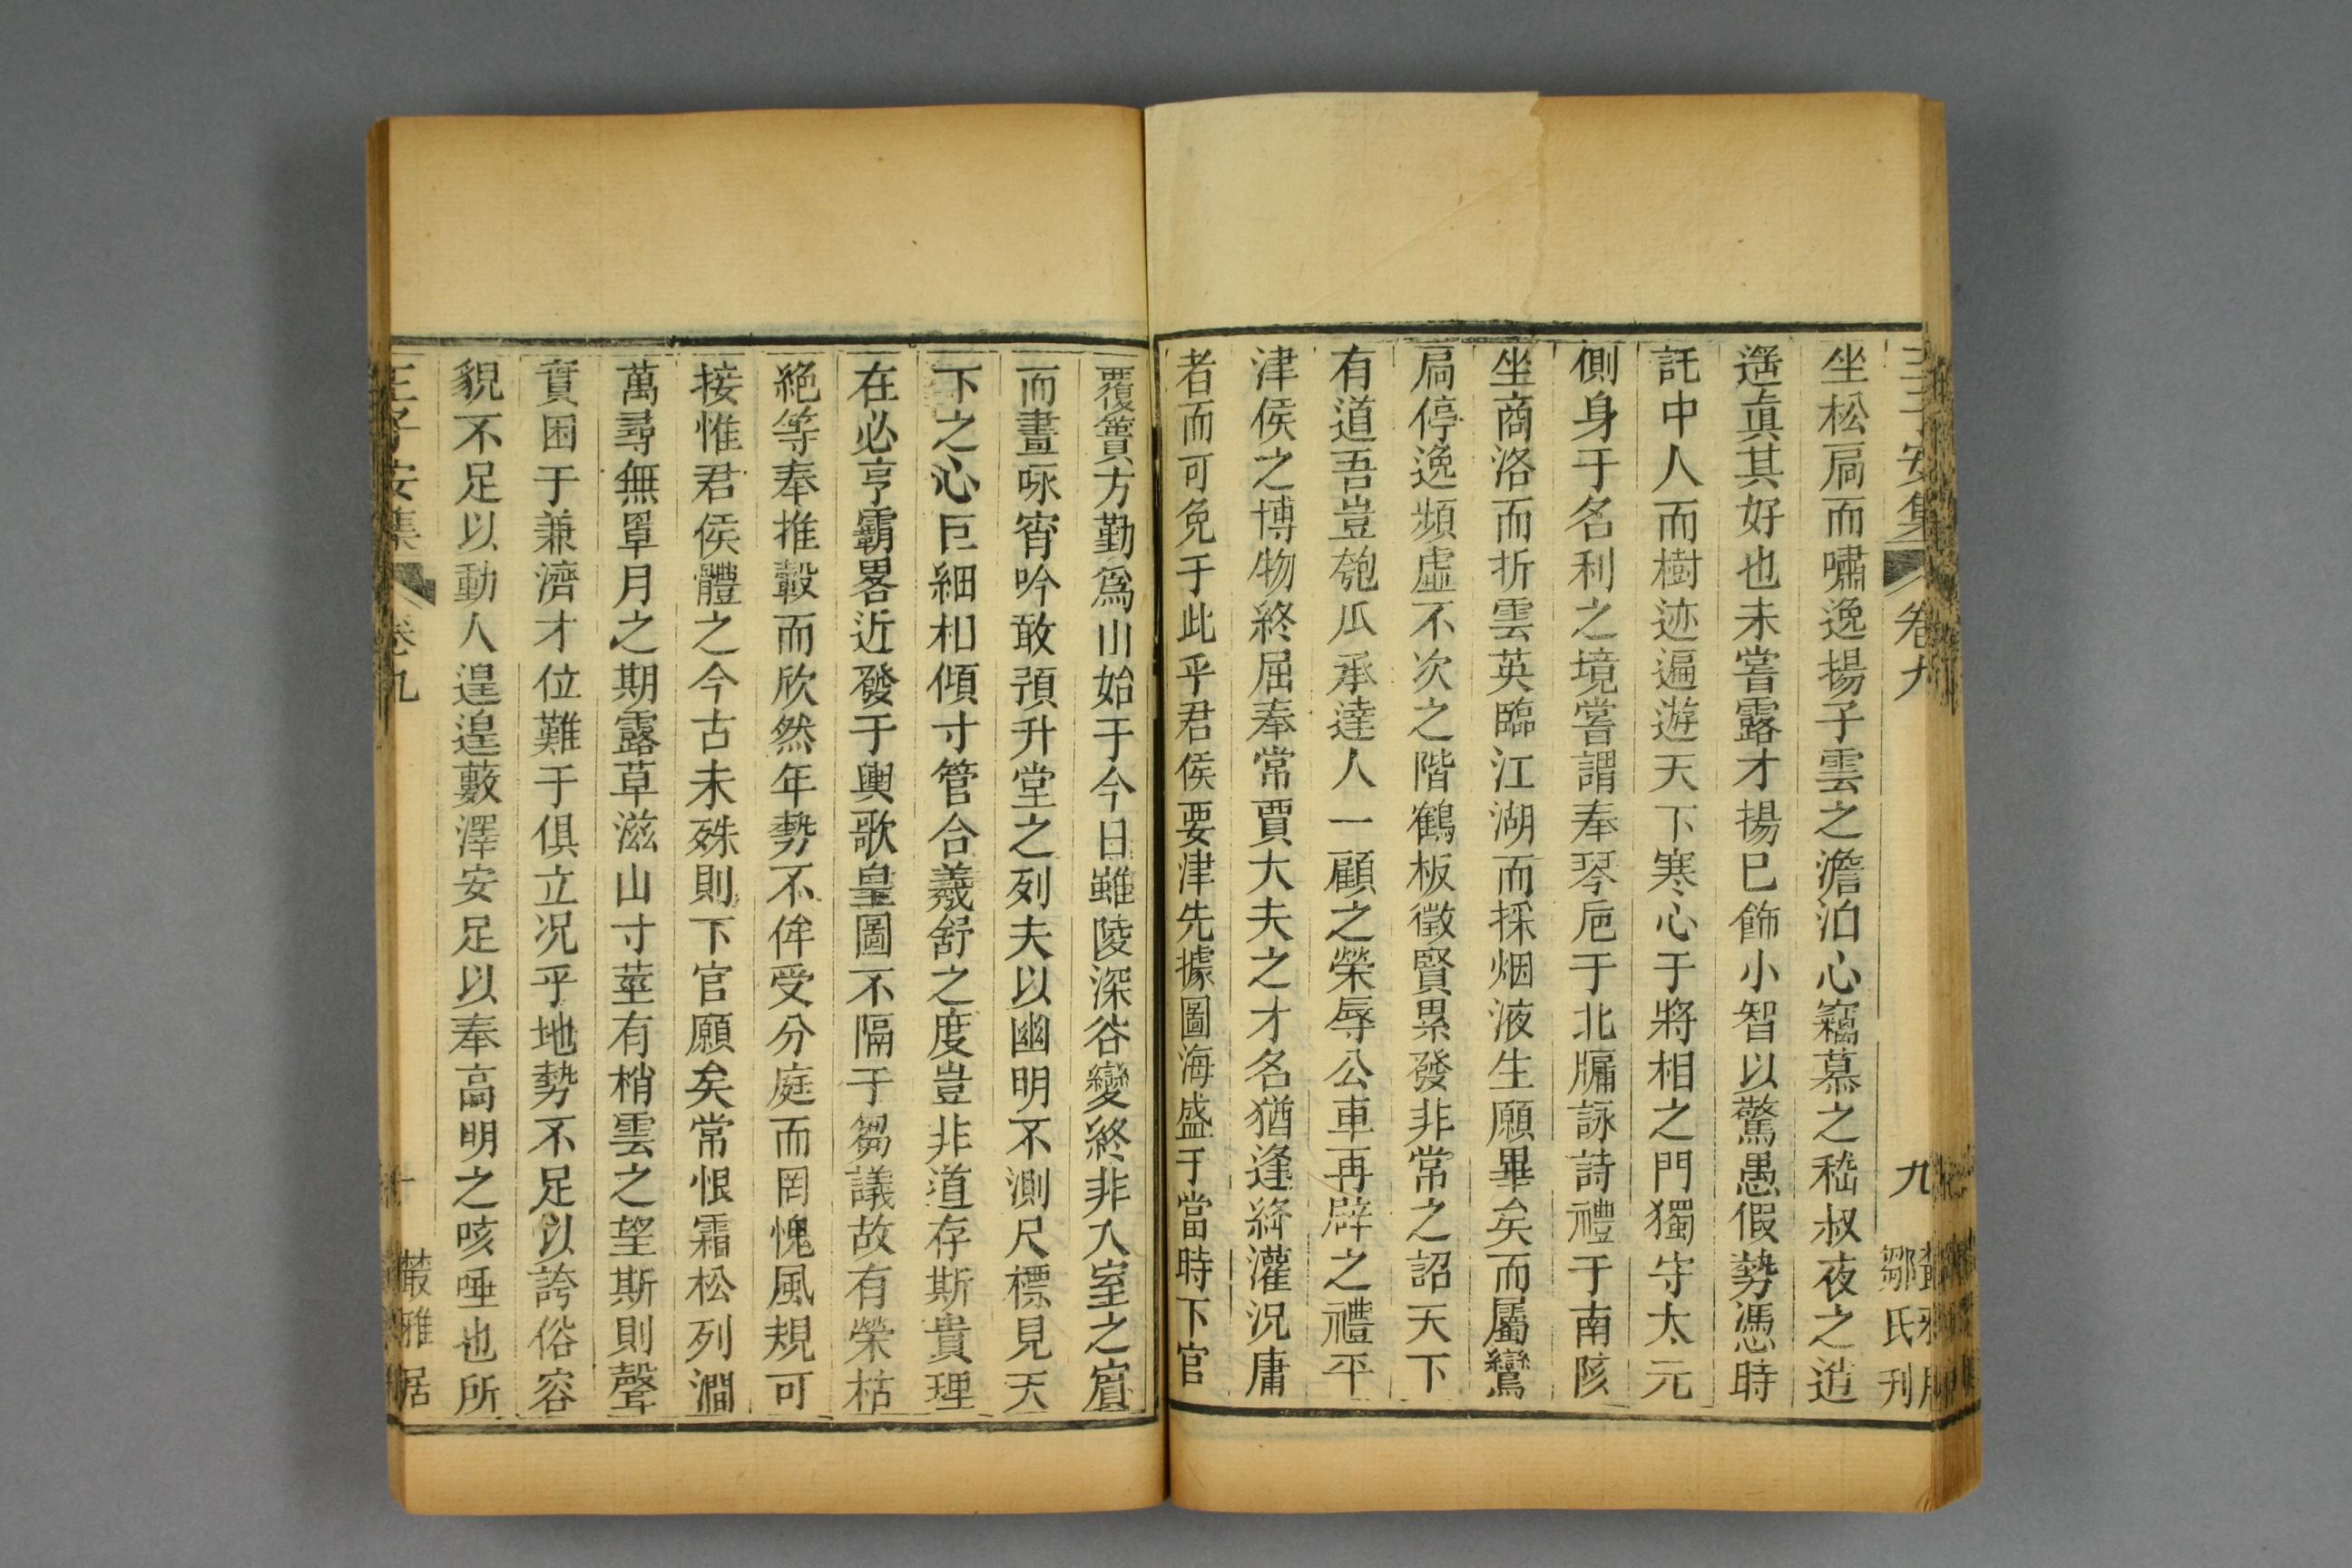 王子安集 卷九 九 叢雅居鄒氏刊
坐松扃而嘯逸揚子雲之澹泊心竊慕之嵇叔夜之逍
遥眞其好也未嘗露才揚巳飾小智以驚愚假勢憑時
託中人而樹迹遍遊天下寒心于將相之門獨守太元
側身于名利之境嘗謂奉琴巵于北牖詠詩禮于南陔
坐商洛而折雲英臨江湖而採烟液生願畢矣而屬鸞
扃停逸頻虛不次之階鶴板徵賢累發非常之詔天下
有道吾豈匏瓜承達人一顧之榮辱公車再辟之禮平
津侯之博物終屈奉常賈大夫之才名猶逢絳灌況庸
者而可免于此乎君侯要津先據圖海盛于當時下官
覆簣方勤爲山始于今日雖陵深谷變終非入室之賓
而晝咏宵吟敢預升堂之列夫以幽明不測尺標見天
下之心巨細相傾寸管合羲舒之度豈非道存斯貴理
在必亨霸畧近發于輿歌皇圖不隔于芻議故有榮枯
絕等奉推轂而欣然年勢不侔受分庭而罔愧風規可
接惟君侯體之今古未殊則下官願矣常恨霜松列澗
萬尋無罩月之期露草滋山寸莖有梢雲之望斯則聲
實困于兼濟才位難于俱立况乎地勢不足以誇俗容
貌不足以動人遑遑藪澤安足以奉高明之咳唾也所
王子安集 卷九 十 叢雅居